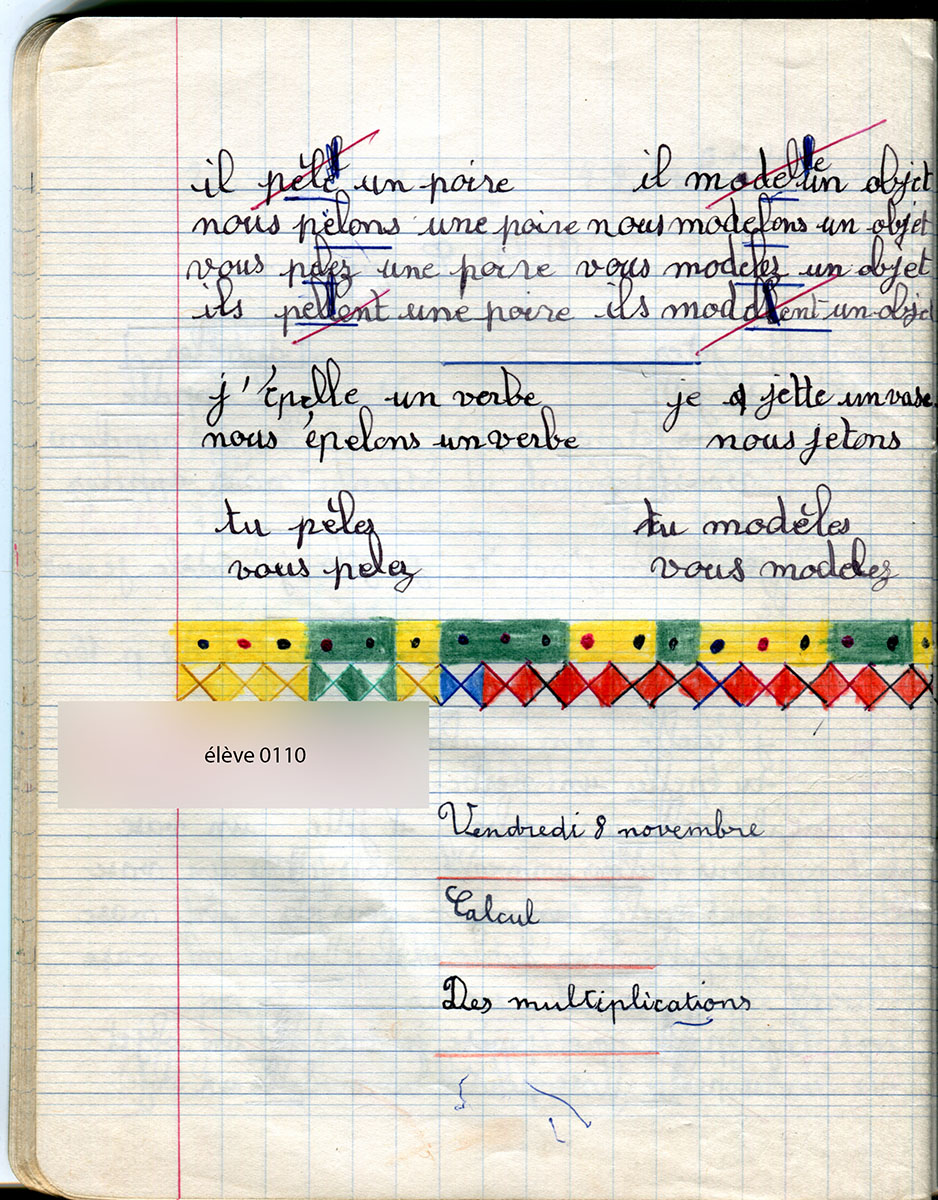 il pèle un poire il modelle un objet
nous pèlons une poire nous modelons un objet
vous pelez une poire vous modelez un objet
ils pellent une poire ils modelent un objet
j'épelle un verbe je jette un vase.
nous épelons un verbe nous jetons
tu pèles tu modèles
vous pelez vous modelez
élève 0110
Vendredi 8 novembre
Calcul
Des multiplications